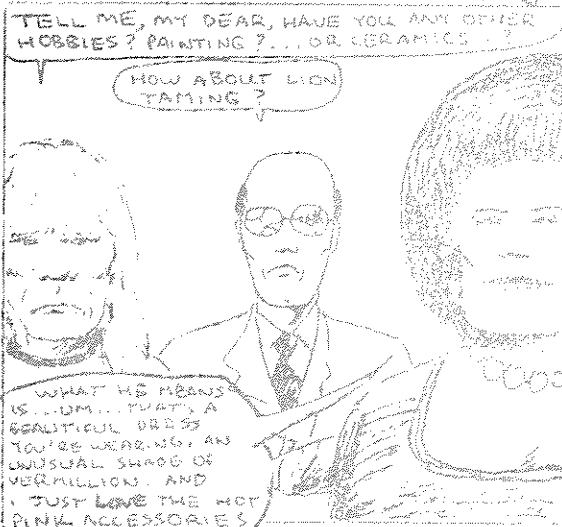 TELL ME, MY DEAR, HAVE YOU ANY OTHER
HOBBIES? PAINTING?...OR CERAMICS...?
HOW ABOUT LION
TAMING?
WHAT HE MEANS
IS...UM...THAT'S A
BEAUTIFUL DRESS
YOU'RE WEARING, AN
UNUSUAL SHADE OF
VERMILLION. AND
I JUST LOVE THE HOT
PINK ACCESSORIES